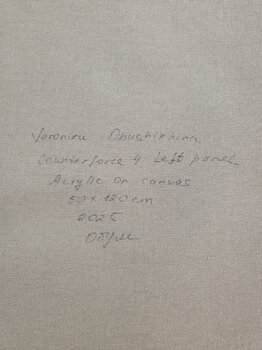 Veronika Obushikhina
Counterforce 4 Left panel
Acrylic on canvas
50 x 120 cm
2025